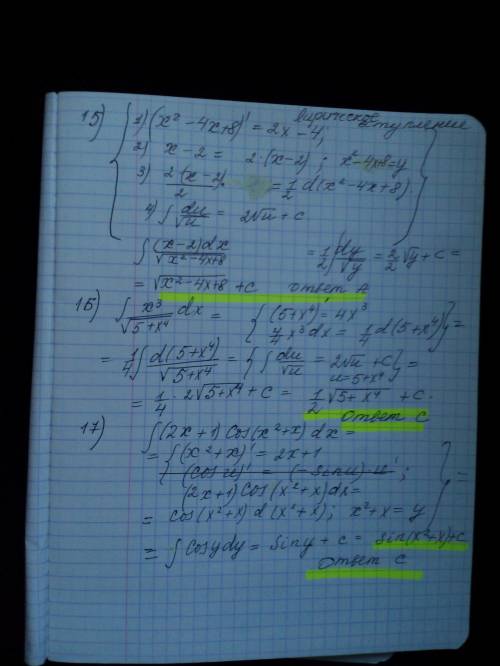 15) 1) (x² - 4x+8)' = 2x - 4; лирическое отступление
2) x - 2 = 2·(x-2) ; x²-4x+8=y
3) 2·(x-2)/2 = 1/2 d(x²-4x+8)
4) ∫ du/√u = 2√u + c
∫ (x-2)dx/√(x²-4x+8) = 1/2 ∫ dy/√y = 2/2 √y + c =
= √(x²-4x+8) + c ответ A
16) ∫ x³/√(5+x⁴) dx = { (5+x⁴)' = 4x³
4/4 x³dx = 1/4 d(5+x⁴) } =
= 1/4 ∫ d(5+x⁴)/√(5+x⁴) = { ∫ du/√u = 2√u + c } =
u=5+x⁴
= 1/4 · 2√(5+x⁴) + c = 1/2 √(5+x⁴) + c.
ответ C
17) ∫ (2x+1) Cos(x²+x) dx =
= { (x²+x)' = 2x+1
(cos u)' = (-sin u)·u' ;
(2x+1) Cos(x²+x)dx =
= Cos(x²+x) d(x²+x); x²+x = y } =
= ∫ Cosydy = Siny + c = Sin(x²+x)+c
ответ C